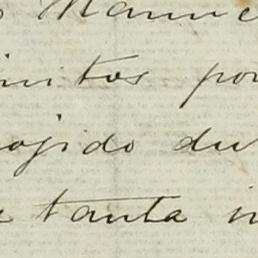 Manue
initos por
ojido du
tanta i